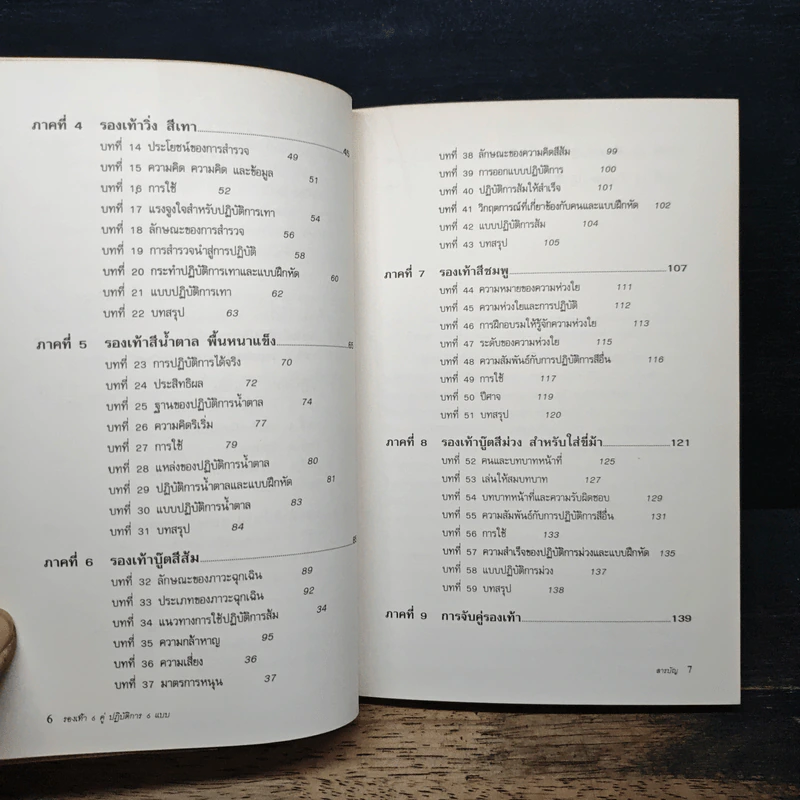 ภาคที่ 4 รองเท้าวิ่ง สีเทา 45
บทที่ 14 ประโยชน์ของการสำรวจ 49
บทที่ 15 ความคิด ความคิด และข้อมูล 51
บทที่ 16 การใช้ 52
บทที่ 17 แรงจูงใจสำหรับปฏิบัติการเทา 54
บทที่ 18 ลักษณะของการสำรวจ 56
บทที่ 19 การสำรวจนำสู่การปฏิบัติ 58
บทที่ 20 กระทำปฏิบัติการเทาและแบบฝึกหัด 60
บทที่ 21 แบบปฏิบัติการเทา 62
บทที่ 22 บทสรุป 63
ภาคที่ 5 รองเท้าสีน้ำตาล พื้นหนาแข็ง
บทที่ 23 การปฏิบัติการได้จริง 70
บทที่ 24 ประสิทธิผล 72
บทที่ 25 ฐานของปฏิบัติการน้ำตาล 74
บทที่ 26 ความคิดริเริ่ม 77
บทที่ 27 การใช้ 79
บทที่ 28 แหล่งของปฏิบัติการน้ำตาล 80
บทที่ 29 ปฏิบัติการน้ำตาลและแบบฝึกหัด 81
บทที่ 30 แบบปฏิบัติการน้ำตาล 83
บทที่ 31 บทสรุป 84
ภาคที่ 6 รองเท้าบู๊ตสีส้ม
บทที่ 32 ลักษณะของภาวะฉุกเฉิน 89
บทที่ 33 ประเภทของภาวะฉุกเฉิน 92
บทที่ 34 แนวทางการใช้ปฏิบัติการส้ม 34
บทที่ 35 ความกล้าหาญ 95
บทที่ 36 ความเสี่ยง 36
บทที่ 37 มาตรการหนุน 37
6 รองเท้า 6 คู่ ปฏิบัติการ 6 แบบ
บทที่ 38 ลักษณะของความคิดสีส้ม 99
บทที่ 39 การออกแบบปฏิบัติการ 100
บทที่ 40 ปฏิบัติการส้มให้สำเร็จ 101
บทที่ 41 วิกฤตการณ์ที่เกี่ยวข้องกับคนและแบบฝึกหัด 102
บทที่ 42 แบบปฏิบัติการส้ม 104
บทที่ 43 บทสรุป 105
ภาคที่ 7 รองเท้าสีชมพู 107
บทที่ 44 ความหมายของความห่วงใย 111
บทที่ 45 ความห่วงใยและการปฏิบัติ 112
บทที่ 46 การฝึกอบรมให้รู้จักความห่วงใย 113
บทที่ 47 ระดับของความห่วงใย 115
บทที่ 48 ความสัมพันธ์กับการปฏิบัติการสีอื่น 116
บทที่ 49 การใช้ 117
บทที่ 50 ปีศาจ 119
บทที่ 51 บทสรุป 120
ภาคที่ 8 รองเท้าบู๊ตสีม่วง สำหรับใส่ขี่ม้า 121
บทที่ 52 คนและบทบาทหน้าที่ 125
บทที่ 53 เล่นให้สมบทบาท 127
บทที่ 54 บทบาทหน้าที่และความรับผิดชอบ 129
บทที่ 55 ความสัมพันธ์กับการปฏิบัติการสีอื่น 131
บทที่ 56 การใช้ 133
บทที่ 57 ความสำเร็จของปฏิบัติการม่วงและแบบฝึกหัด 135
บทที่ 58 แบบปฏิบัติการม่วง 137
บทที่ 59 บทสรุป 138
ภาคที่ 9 การจับคู่รองเท้า 139
สารบัญ 7